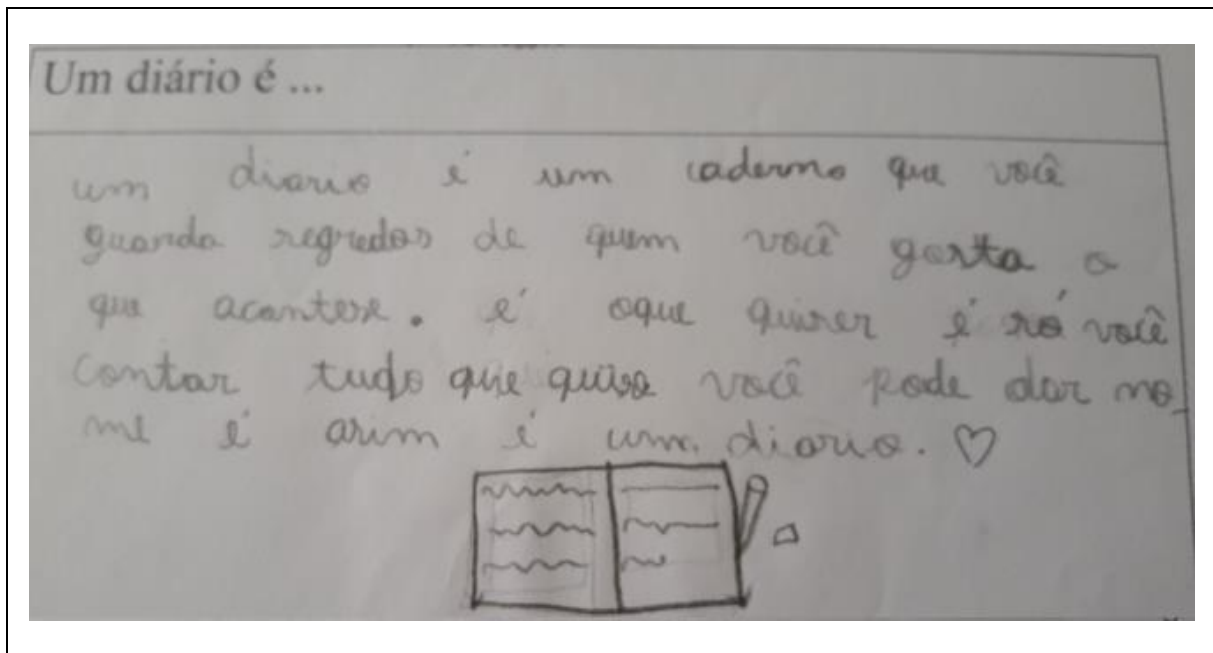 Um diário é ...
um diario é um caderno que você
guarda segredos de quem você gosta o
que acontese. é oque quiser é só você
contar tudo que quiser você pode dar no_
me é asim é um diario. ♡